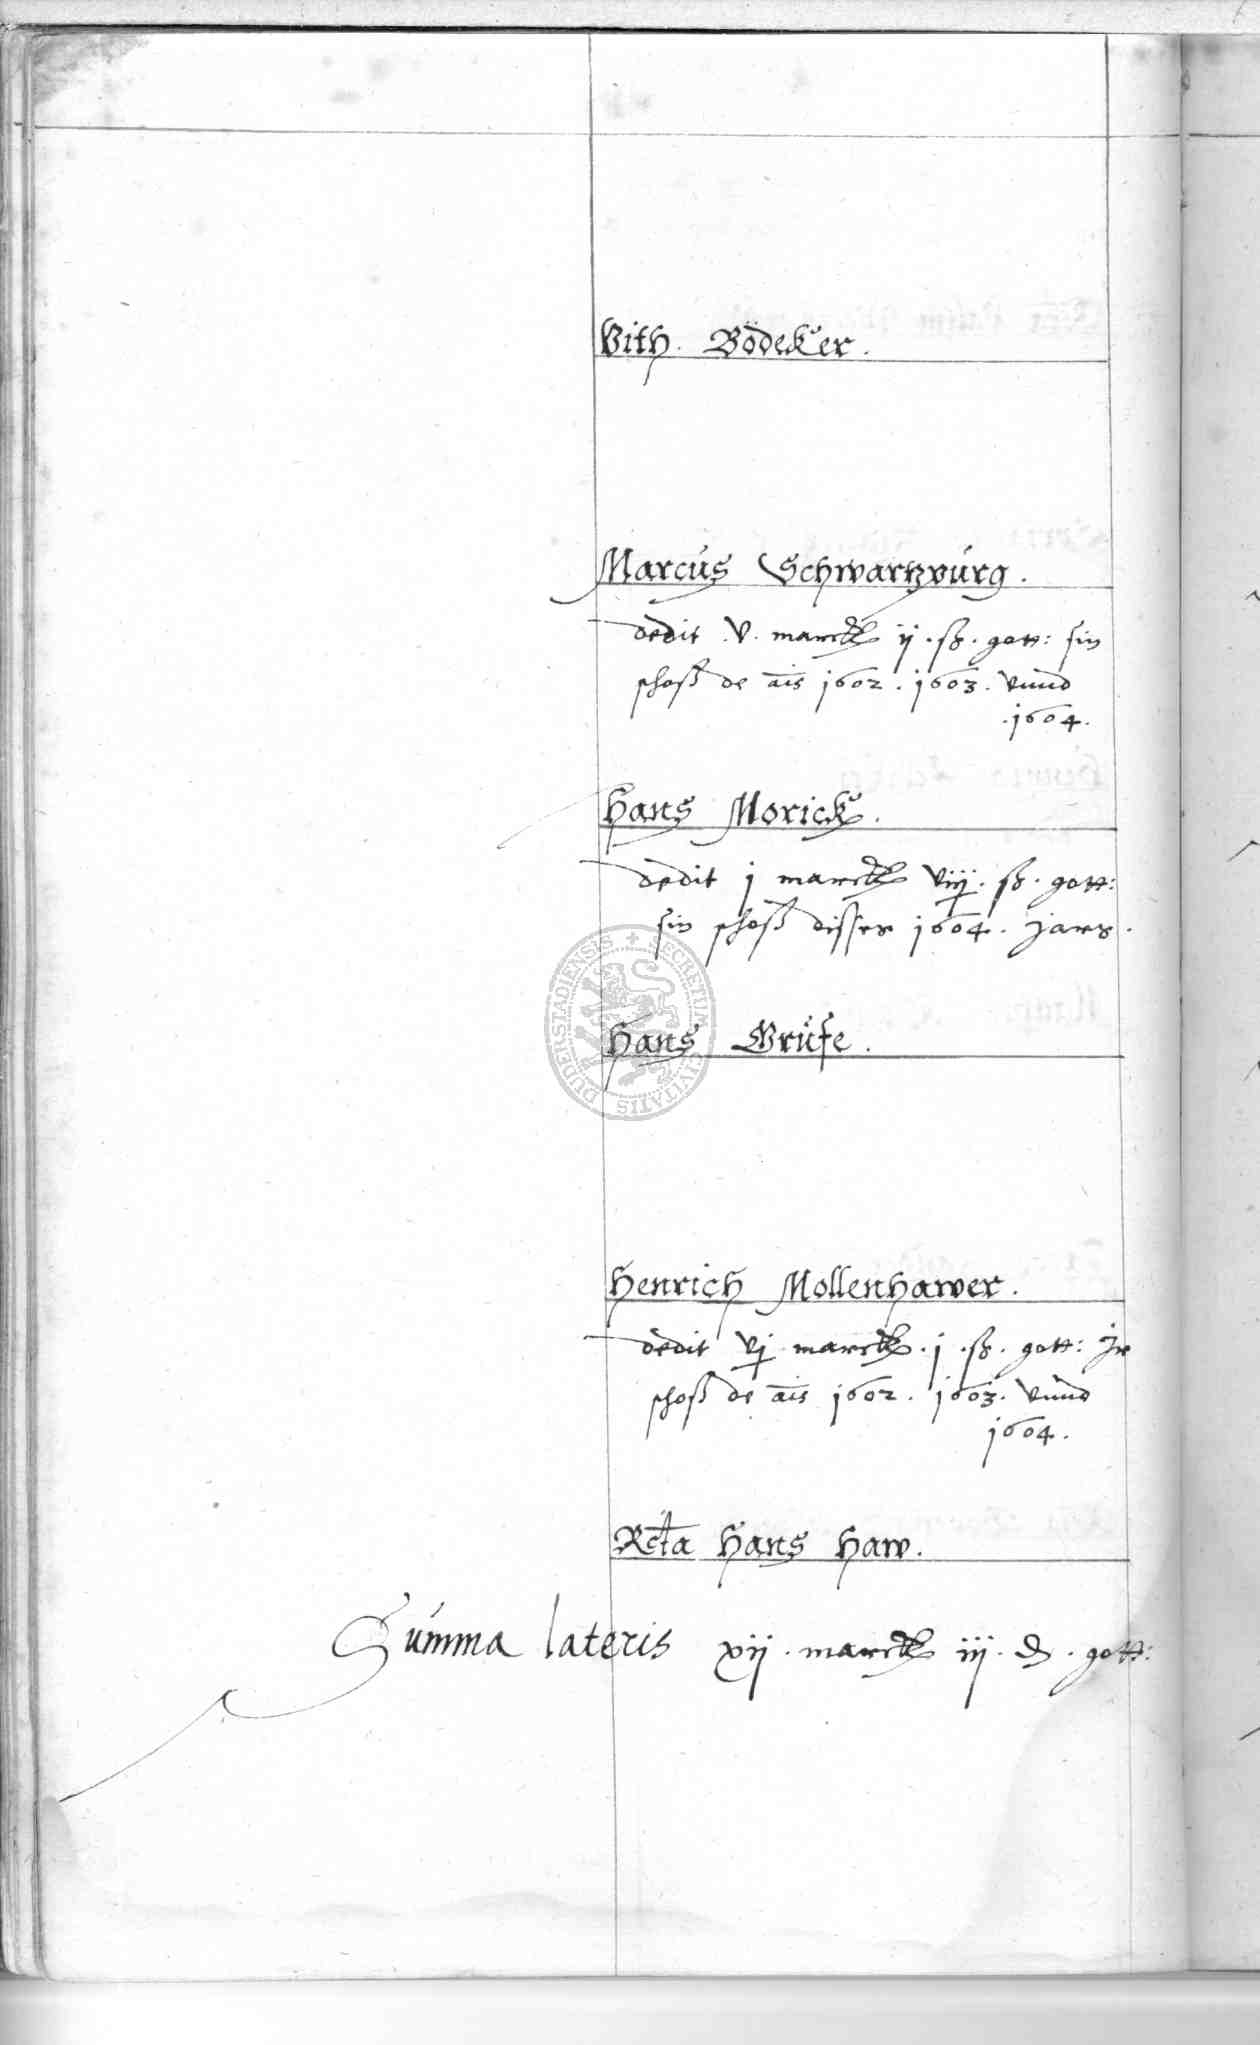 Vith. Bödeker.
Marcus Schwartzburg.
dedit .v. marck ij .ß. gott: sin
schoß de ais 1602. 1603. vnnd
.1604.
Hans Morick.
dedit j marck viij. ß. gott:
sin schoß disses 1604. jars.
Hans Grüfe.
Henrich Mollenhawer.
dedit vj marck .j .ß. gott: Jr
schoß de ais 1602. 1603. vnnd
1604.
Rcta Hans Haw.
Summa lateris xij. marck iij. d. gott:
SECRETUM CIVITATIS DUDERSTADIENSIS